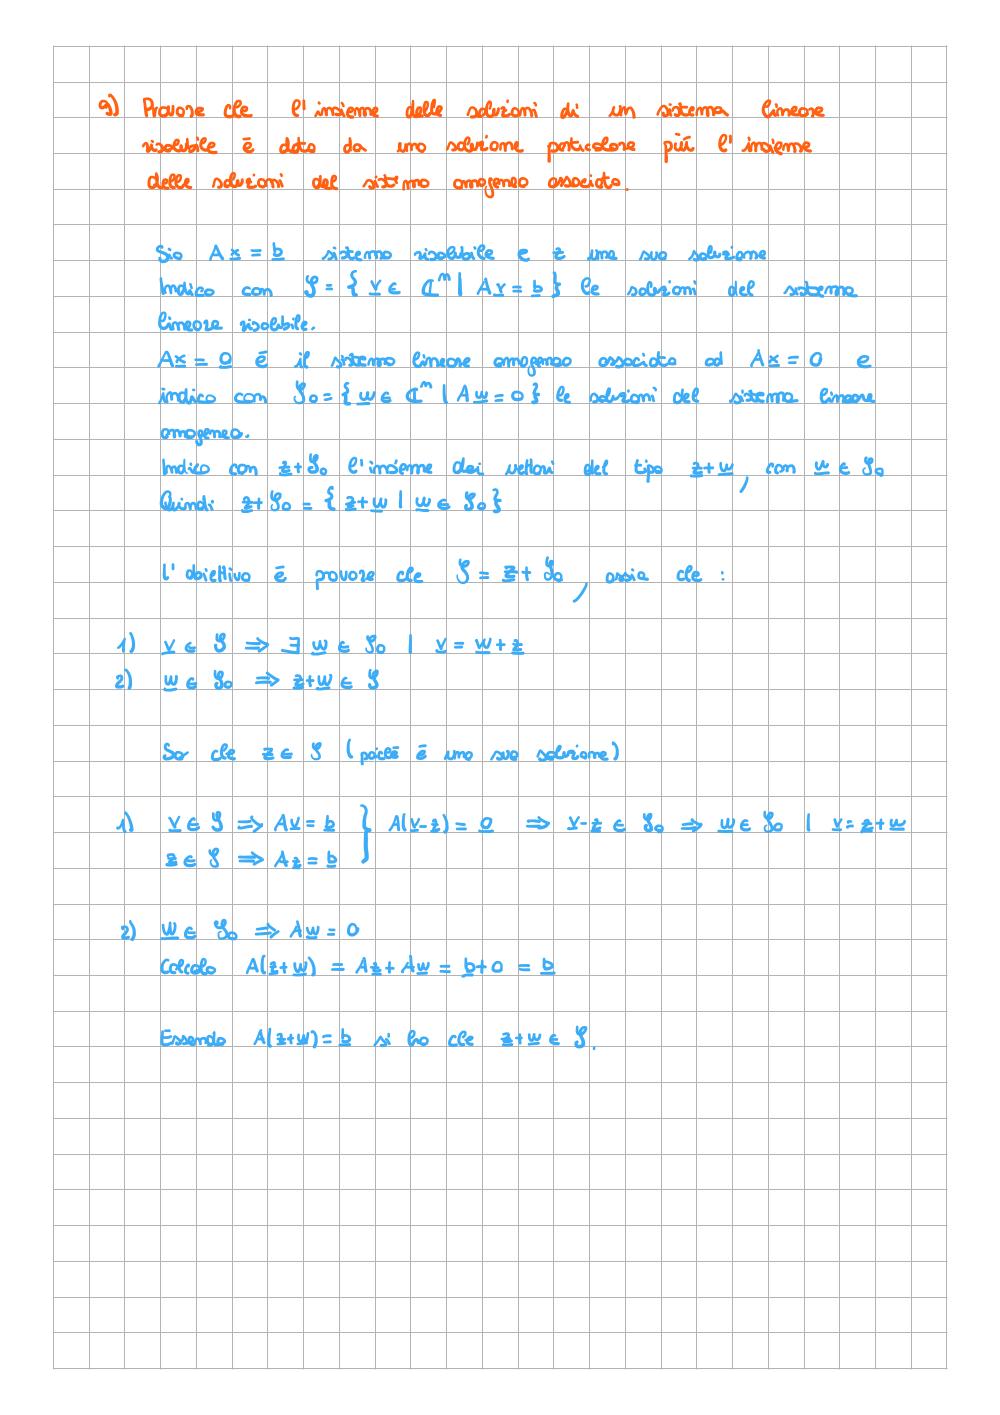 9) Provare che l'insieme delle soluzioni di un sistema lineare
risolubile è dato da una soluzione particolare più l'insieme
delle soluzioni del sistema omogeneo associato.
Sia A<u>x</u> = <u>b</u> sistema risolubile e z una sua soluzione
Indico con 𝒮 = { <u>v</u> ∈ ℂⁿ | A<u>v</u> = <u>b</u> } le soluzioni del sistema
lineare risolubile.
A<u>x</u> = <u>0</u> è il sistema lineare omogeneo associato ad A<u>x</u> = 0 e
indico con 𝒮₀ = { <u>w</u> ∈ ℂⁿ | A<u>w</u> = 0 } le soluzioni del sistema lineare
omogeneo.
Indico con <u>z</u> + 𝒮₀ l'insieme dei vettori del tipo <u>z</u> + <u>w</u>, con <u>w</u> ∈ 𝒮₀
Quindi <u>z</u> + 𝒮₀ = { <u>z</u> + <u>w</u> | <u>w</u> ∈ 𝒮₀ }
L'obiettivo è provare che 𝒮 = <u>z</u> + 𝒮₀, ossia che :
1) <u>v</u> ∈ 𝒮 ⇒ ∃ <u>w</u> ∈ 𝒮₀ | <u>v</u> = <u>w</u> + <u>z</u>
2) <u>w</u> ∈ 𝒮₀ ⇒ <u>z</u> + <u>w</u> ∈ 𝒮
So che <u>z</u> ∈ 𝒮 (poiché è una sua soluzione)
1) <u>v</u> ∈ 𝒮 ⇒ A<u>v</u> = <u>b</u> } A(<u>v</u> - <u>z</u>) = <u>0</u> ⇒ <u>v</u> - <u>z</u> ∈ 𝒮₀ ⇒ <u>w</u> ∈ 𝒮₀ | <u>v</u> = <u>z</u> + <u>w</u>
<u>z</u> ∈ 𝒮 ⇒ A<u>z</u> = <u>b</u>
2) <u>w</u> ∈ 𝒮₀ ⇒ A<u>w</u> = 0
Calcolo A(<u>z</u> + <u>w</u>) = A<u>z</u> + A<u>w</u> = <u>b</u> + 0 = <u>b</u>
Essendo A(<u>z</u> + <u>w</u>) = <u>b</u> si ha che <u>z</u> + <u>w</u> ∈ 𝒮.